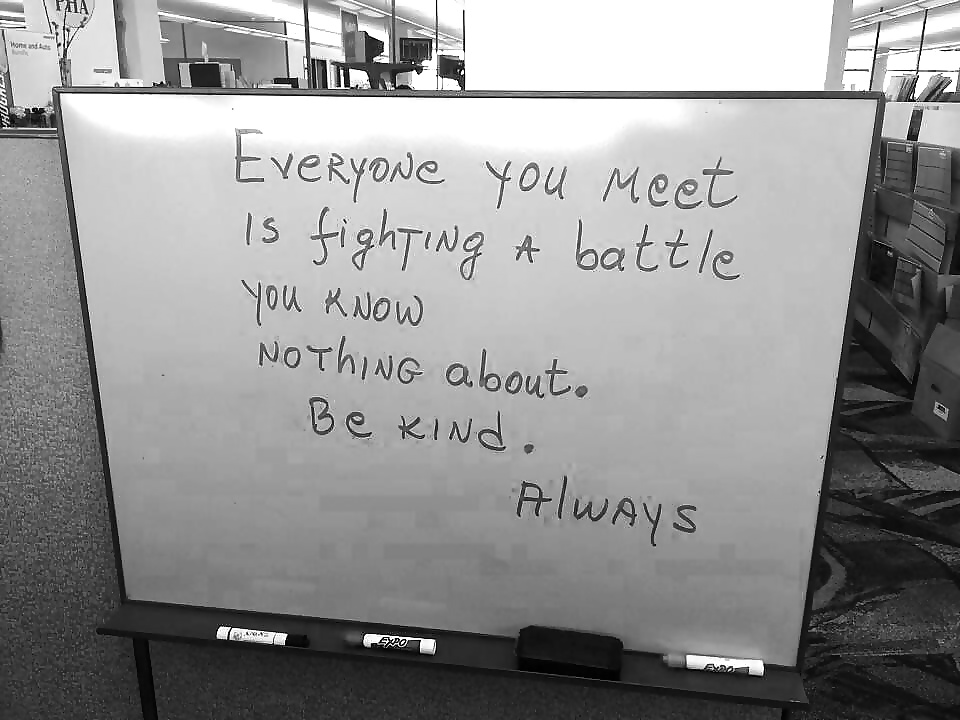 PHA
Home and Auto
Bundle
EVERYONE YOU Meet
IS fighTING A battle
YOU KNOW
NOThING about.
Be KINd.
AlWAYS
EXPO
EXPO